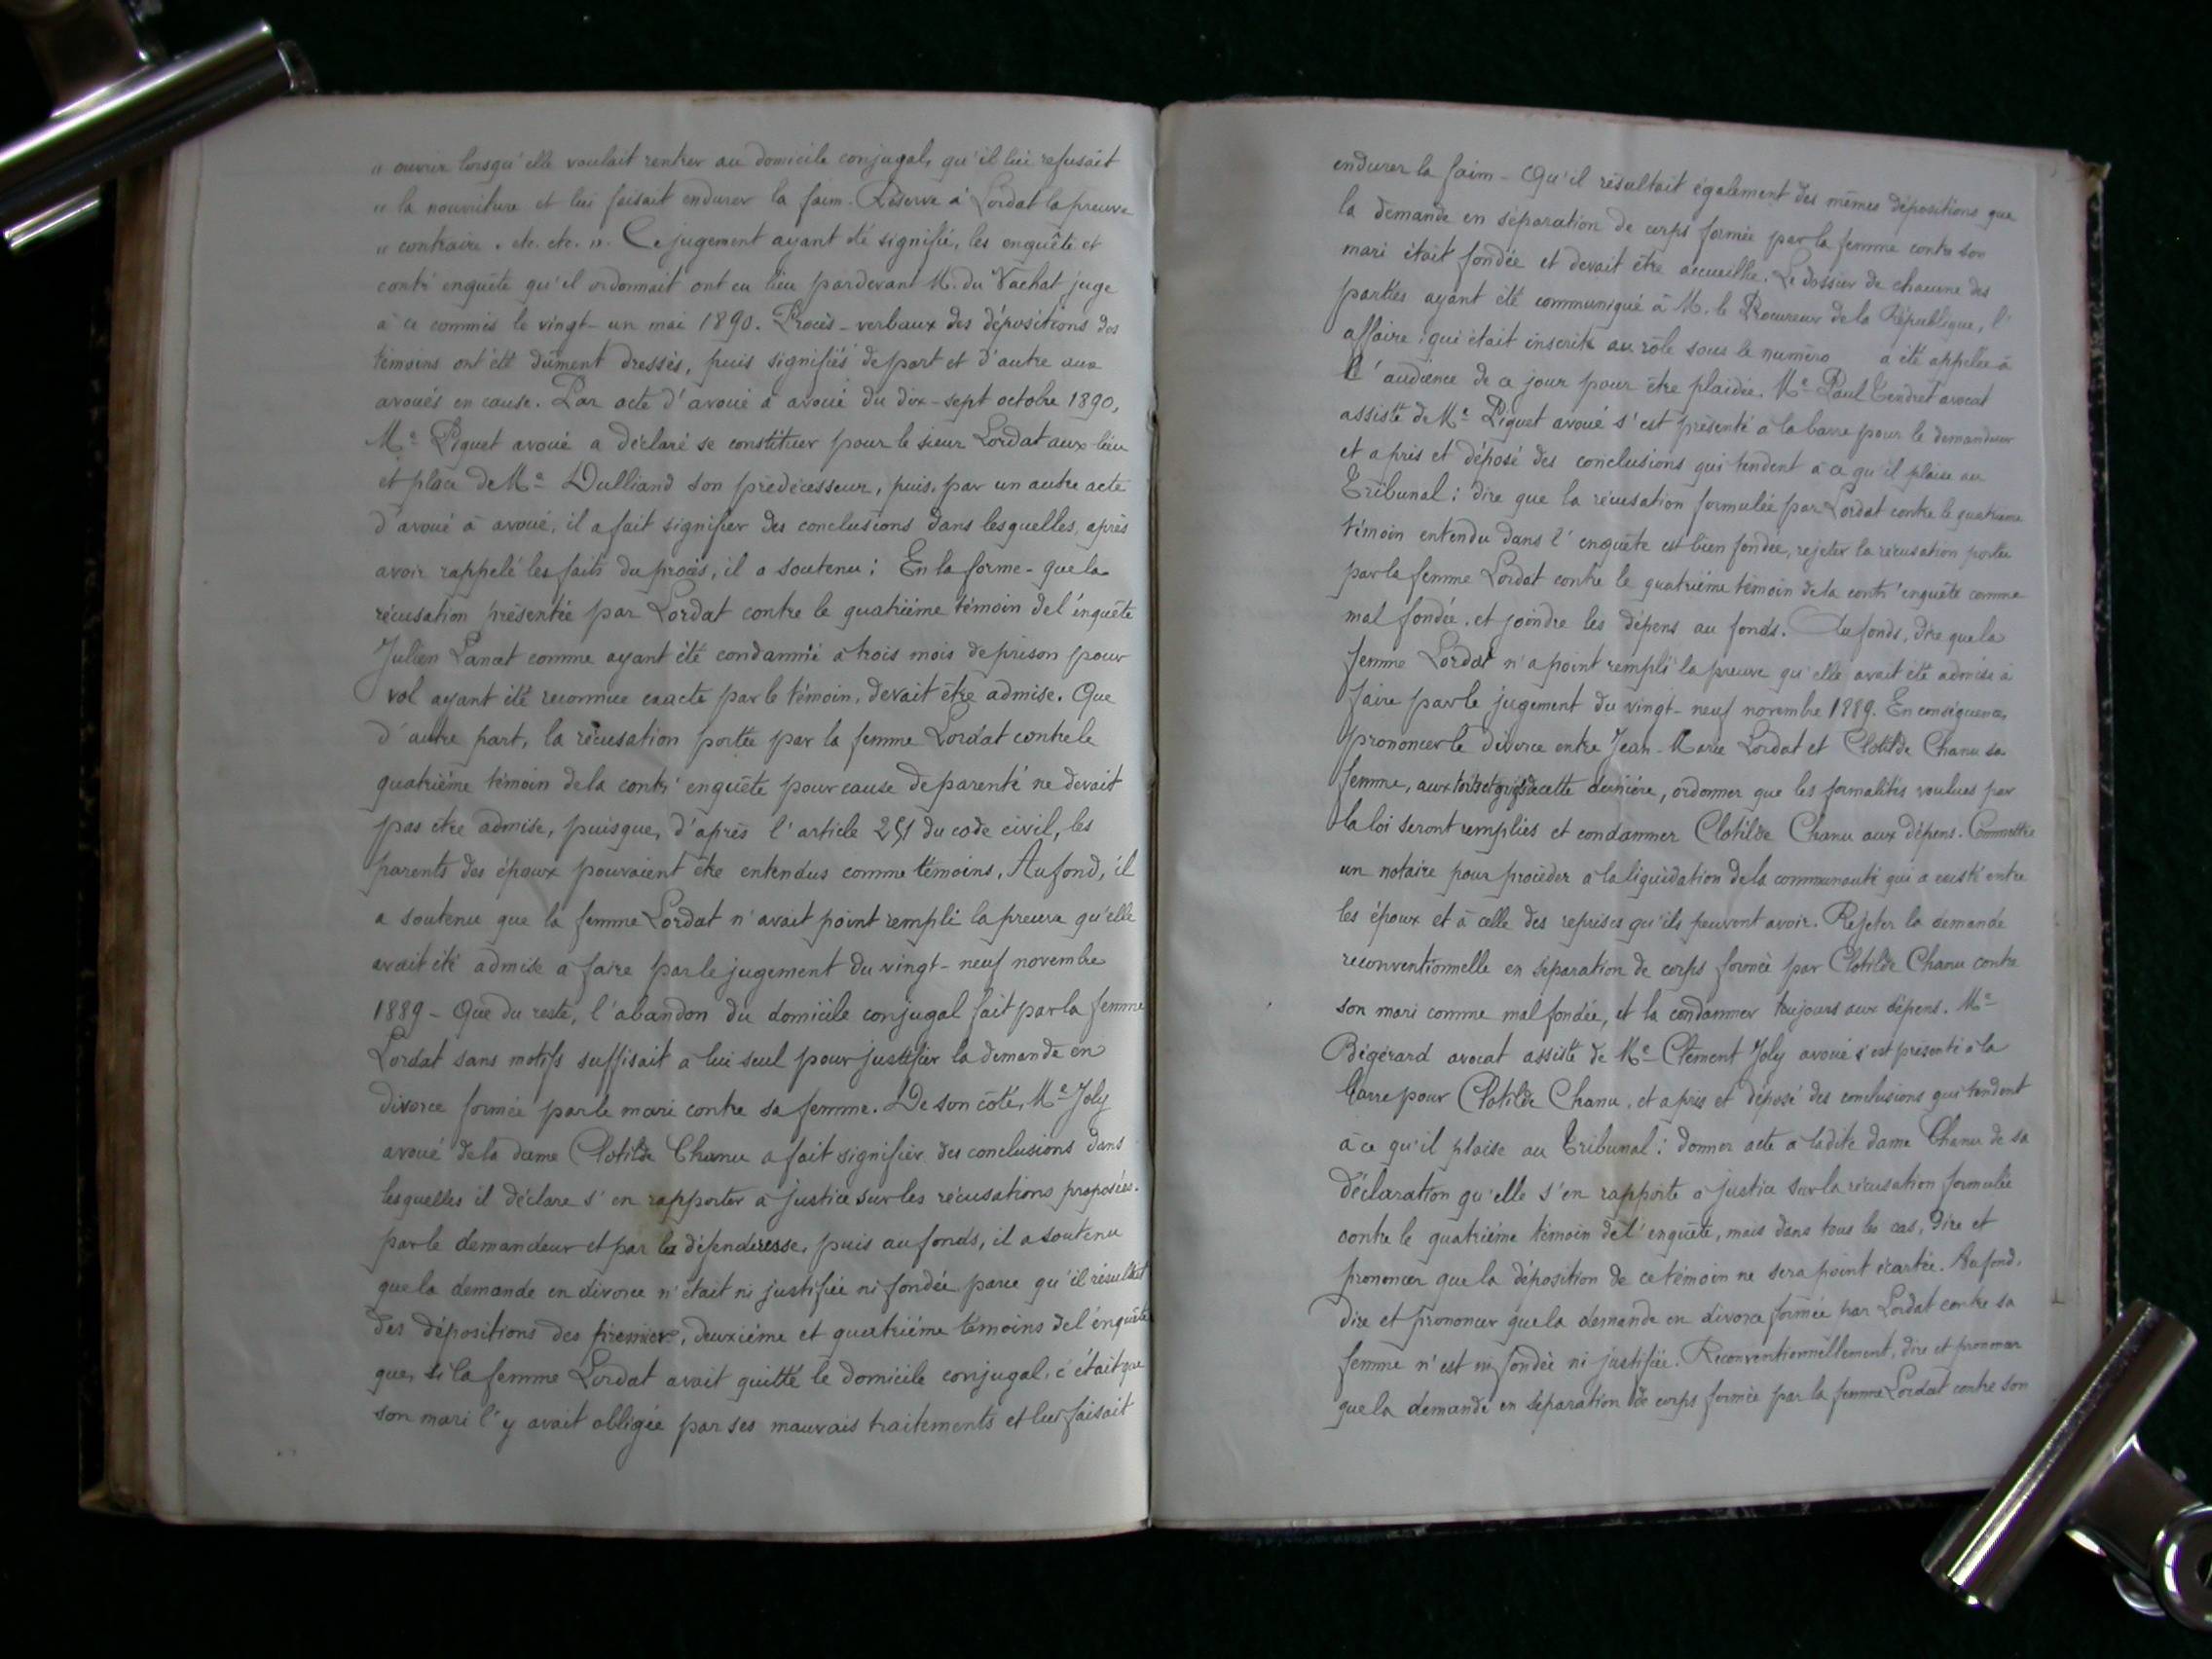 " ouvrir lorsqu'elle voulait rentrer au domicile conjugal, qu'il lui refusait
" la nourriture et lui faisait endurer la faim. Réserve à Lordat la preuve
" contraire. etc. etc. ". Ce jugement ayant été signifié, les enquête et
contr'enquête qu'il ordonnait ont eu lieu pardevant M. du Vachat juge
à ce commis le vingt-un mai 1890. Procès-verbaux des dépositions des
témoins ont été dûment dressés, puis signifiés de part et d'autre aux
avoués en cause. Par acte d'avoué à avoué du dix-sept octobre 1890,
Me Piquet avoué a déclaré se constituer pour le sieur Lordat aux lieu
et place de Me Dulliand son prédécesseur, puis, par un autre acte
d'avoué à avoué, il a fait signifier des conclusions dans lesquelles, après
avoir rappelé les faits du procès, il a soutenu : En la forme - que la
récusation présentée par Lordat contre le quatrième témoin de l'enquête
Julien Pancet comme ayant été condamné à trois mois de prison pour
vol ayant été reconnue exacte par le témoin, devait être admise. Que
d'autre part, la récusation portée par la femme Lordat contre le
quatrième témoin de la contr'enquête pour cause de parenté ne devait
pas être admise, puisque, d'après l'article 251 du code civil, les
parents des époux pouvaient être entendus comme témoins. Au fond, il
a soutenu que la femme Lordat n'avait point rempli la preuve qu'elle
avait été admise à faire par le jugement du vingt-neuf novembre
1889 - Que du reste, l'abandon du domicile conjugal fait par la femme
Lordat sans motifs suffisait à lui seul pour justifier la demande en
divorce formée par le mari contre sa femme. De son côté, Me Joly
avoué de la dame Clotilde Chanu a fait signifier des conclusions dans
lesquelles il déclare s'en rapporter à justice sur les récusations proposées
par le demandeur et par la défenderesse, puis au fonds, il a soutenu
que la demande en divorce n'était ni justifiée ni fondée parce qu'il résultait
des dépositions des premier, deuxième et quatrième témoins de l'enquête
que, si la femme Lordat avait quitté le domicile conjugal, c'était que
son mari l'y avait obligée par ses mauvais traitements et lui faisait
endurer la faim - Qu'il résultait également des mêmes dépositions que
la demande en séparation de corps formée par la femme contre son
mari était fondée et devait être accueillie. Le dossier de chacune des
parties ayant été communiqué à M. le Procureur de la République, l'
affaire qui était inscrite au rôle sous le numéro a été appelée à
l'audience de ce jour pour être plaidée. Me Paul Tendret avocat
assisté de Me Piquet avoué s'est présenté à la barre pour le demandeur
et a pris et déposé des conclusions qui tendent à ce qu'il plaise au
Tribunal : dire que la récusation formulée par Lordat contre le quatrième
témoin entendu dans l'enquête est bien fondée, rejeter la récusation portée
par la femme Lordat contre le quatrième témoin de la contr'enquête comme
mal fondée, et joindre les dépens au fonds. Au fonds, dire que la
femme Lordat n'a point rempli la preuve qu'elle avait été admise à
faire par le jugement du vingt-neuf novembre 1889. En conséquence,
prononcer le divorce entre Jean-Marie Lordat et Clotilde Chanu sa
femme, aux torts et griefs de cette dernière, ordonner que les formalités voulues par
la loi seront remplies et condamner Clotilde Chanu aux dépens. Commettre
un notaire pour procéder à la liquidation de la communauté qui a existé entre
les époux et à celle des reprises qu'ils peuvent avoir. Rejeter la demande
reconventionnelle en séparation de corps formée par Clotilde Chanu contre
son mari comme mal fondée, et la condamner toujours aux dépens. Me
Bégérard avocat assisté de Me Clément Joly avoué s'est présenté à la
barre pour Clotilde Chanu, et a pris et déposé des conclusions qui tendent
à ce qu'il plaise au Tribunal : donner acte à ladite dame Chanu de sa
déclaration qu'elle s'en rapporte à justice sur la récusation formulée
contre le quatrième témoin de l'enquête, mais dans tous les cas, dire et
prononcer que la déposition de ce témoin ne sera point écartée. Au fond,
dire et prononcer que la demande en divorce formée par Lordat contre sa
femme n'est ni fondée ni justifiée. Reconventionnellement, dire et prononcer
que la demande en séparation de corps formée par la femme Lordat contre son